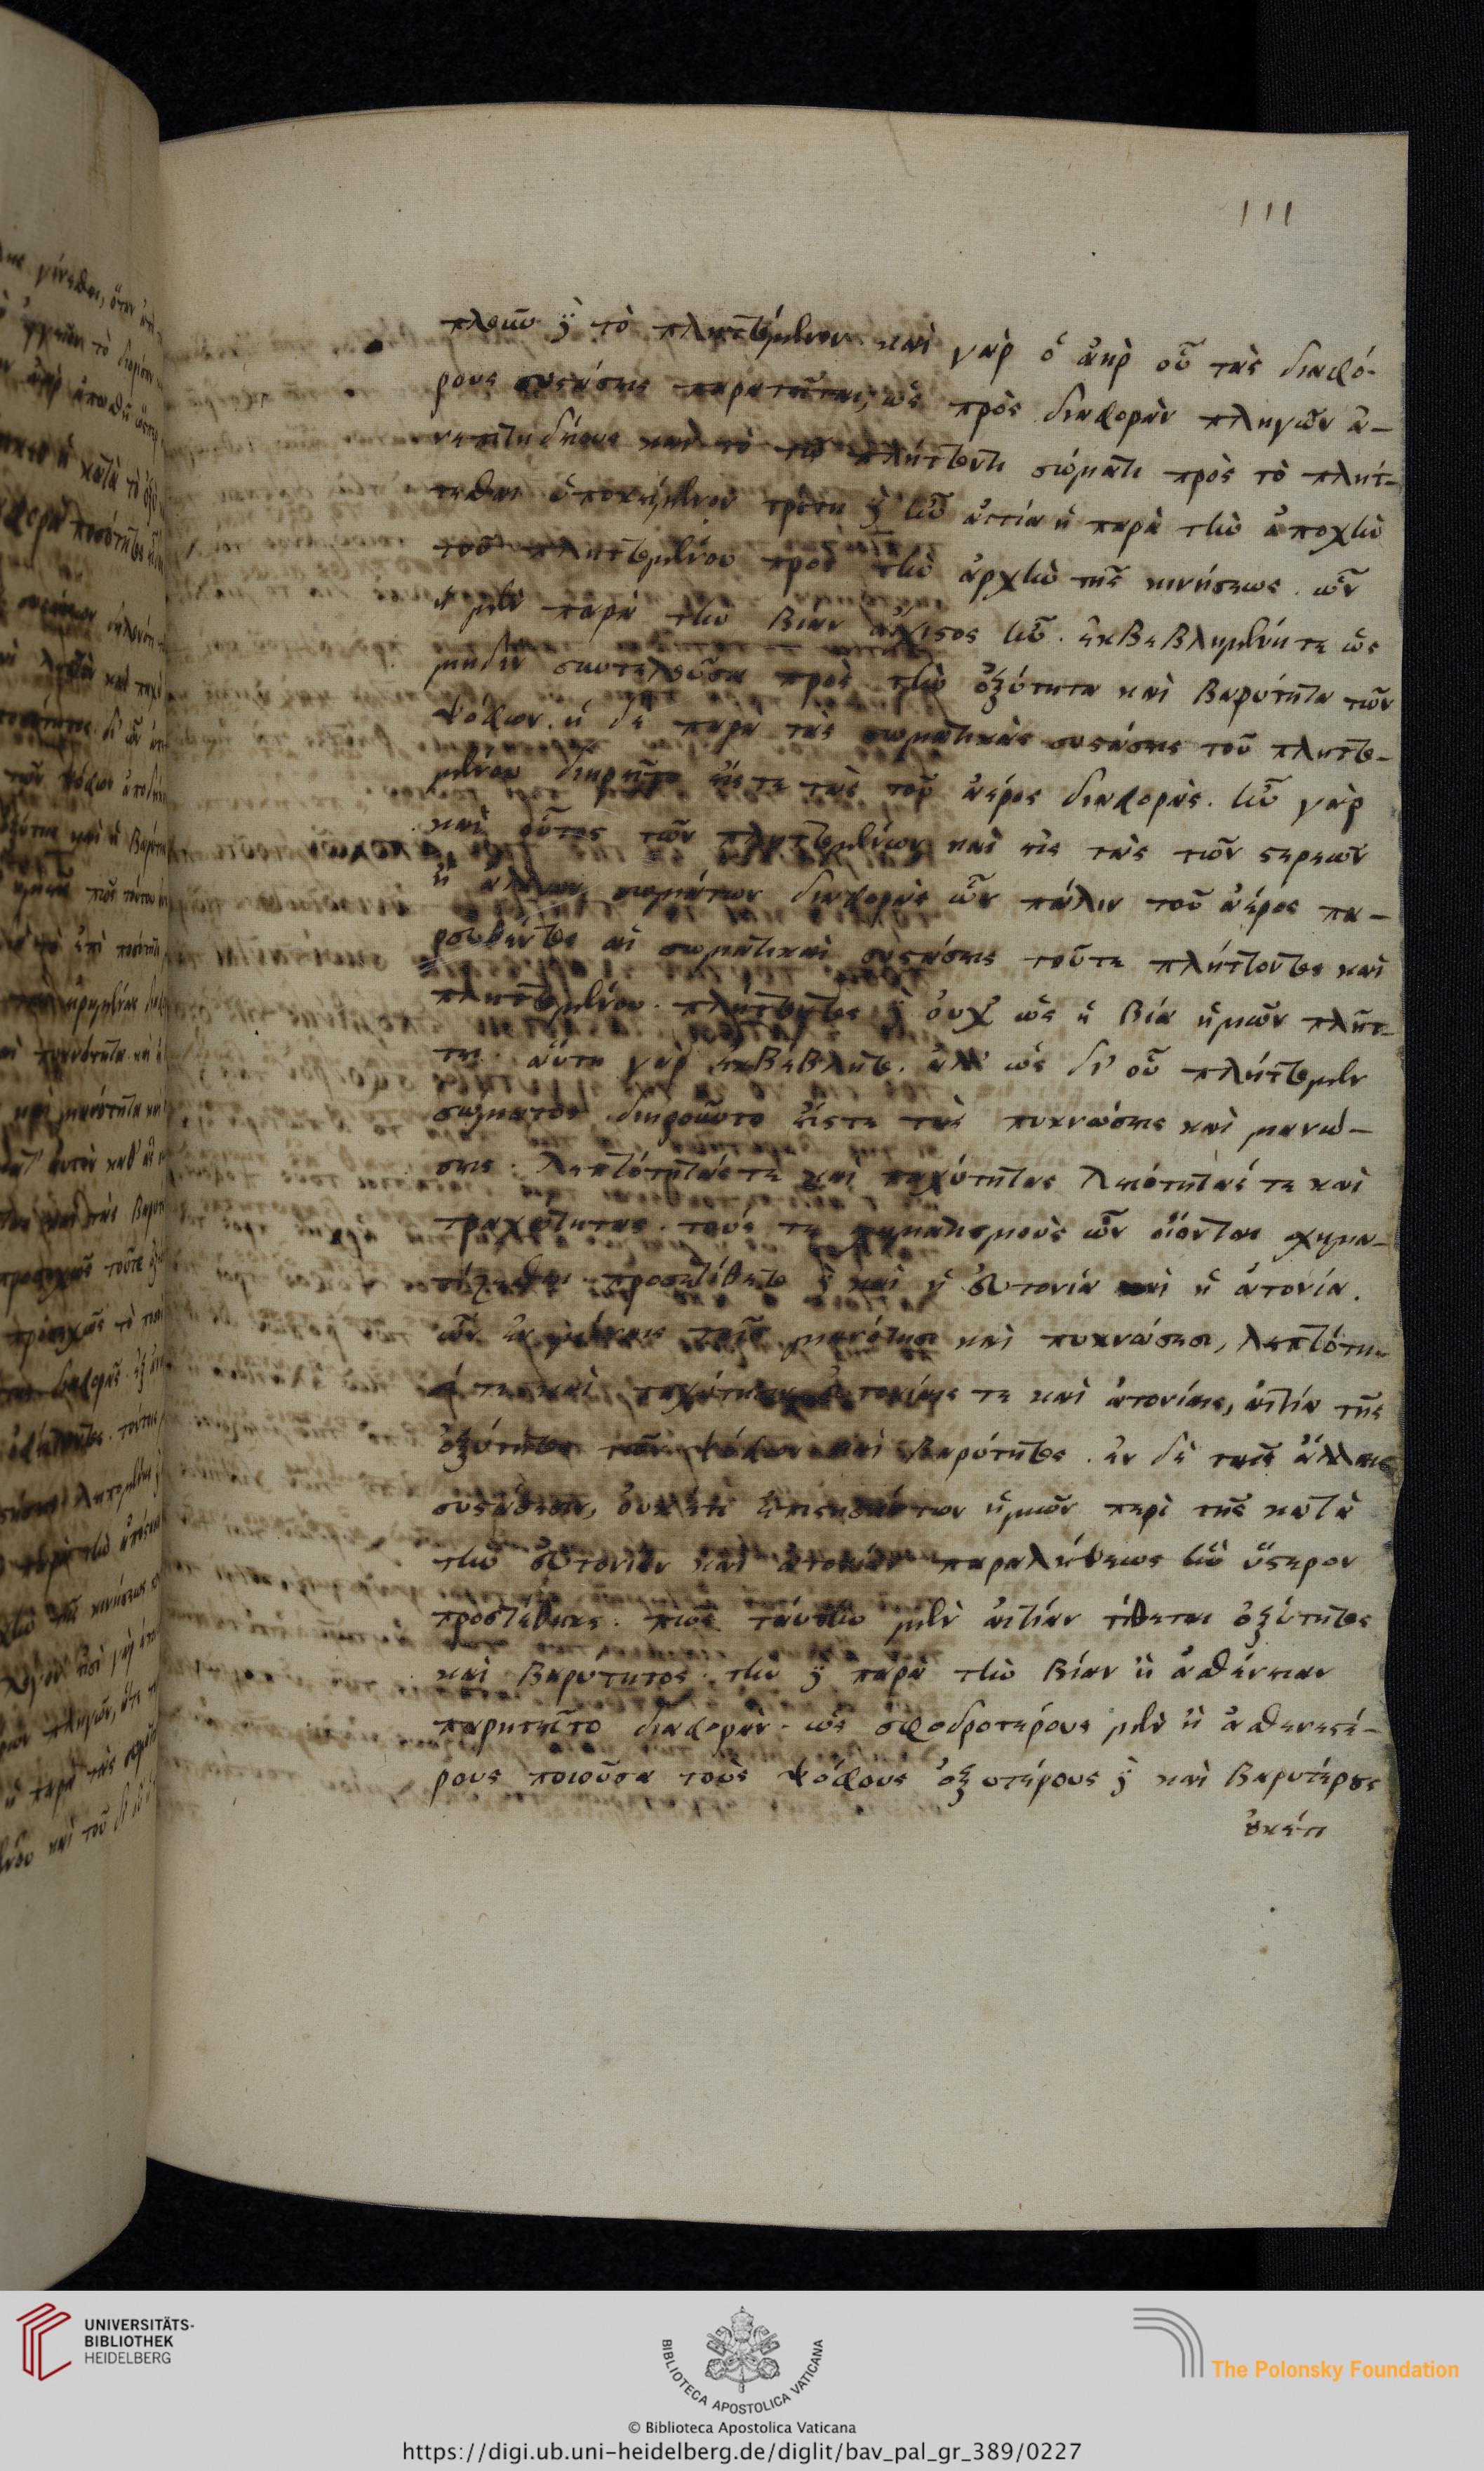 111
πλεῖον δὲ τὸ πληττόμενον. καὶ γὰρ ὁ ἀὴρ οὗ τὰς διαφό-
ρους συστάσεις παρατεῖται, ὡς πρὸς διαφορὰν πληγῶν ἀ-
νεπιτηδείους καὶ τὸ τῷ πλήττοντι σώματι πρὸς τὸ πλήτ-
τεσθαι ὑποκείμενον τρίτη δὲ ἦν αἰτία ἡ παρὰ τὴν ἀποχὴν
τοῦ πληττομένου πρὸς τὴν ἀρχὴν τῆς κινήσεως. ὧν
ἡ μὲν παρὰ τὴν βίαν ἄχρηστος ἦν. ἐκβεβλημένη τε ὡς
μηδὲν συντελοῦσα πρὸς τὴν ὀξύτητα καὶ βαρύτητα τῶν
ψόφων. ἡ δὲ παρὰ τὰς σωματικὰς συστάσεις τοῦ πληττο-
μένου διῃρεῖτο εἴς τε τὰς τοῦ ἀέρος διαφοράς. ἦν γὰρ
καὶ οὗτος τῶν πληττομένων καὶ εἰς τὰς τῶν στερεῶν
ἢ ἄλλων σωμάτων διαφορὰς ὧν πάλιν τοῦ ἀέρος πα-
ρεθέντος αἱ σωματικαὶ συστάσεις τοῦτε πλήττοντος καὶ
πληττομένου. πλήττοντος δὲ οὐχ ὡς ἡ βία ἡμῶν πλήτ-
τει. αὕτη γὰρ ἐκβέβλητο. ἀλλ' ὡς δι' οὗ πλήττομεν
σώματος διῃροῦντο εἴστε τὰς πυκνώσεις καὶ μανώ-
σεις. λεπτότητάς τε καὶ παχύτητας λειότητάς τε καὶ
τραχύτητας. τούς τε σχηματισμοὺς ὧν οἴονται σχημα-
τίζεσθαι. προσετίθετο δὲ καὶ ἡ εὐτονία καὶ ἡ ἀτονία.
ὧν ἐν μόναις ταῖς μανότησι καὶ πυκνώσεσι, λεπτότη-
σί τε καὶ παχύτησιν εὐτονίαις τε καὶ ἀτονίαις, αἰτία τῆς
ὀξύτητος τῶν ψόφων καὶ βαρύτητος. ἐν δὲ ταῖς ἄλλαις
συστάσεσιν, οὐκέτι ἐπιστησάντων ἡμῶν περὶ τῆς κατὰ
τὴν εὐτονίαν καὶ ἀτονίαν παραλήψεως ἣν ὕστερον
προστέθεικε. πῶς ταύτην μὲν αἰτίαν τίθεται ὀξύτητος
καὶ βαρύτητος. τὴν δὲ παρὰ τὴν βίαν ἢ ἀσθένειαν
παρῃτεῖτο διαφοράν. ὡς σφοδροτέρους μὲν ἢ ἀσθενεστέ-
ρους ποιοῦσα τοὺς ψόφους ὀξυτέρους δὲ καὶ βαρυτέρους
οὐκέτι
UNIVERSITÄTS-
BIBLIOTHEK
HEIDELBERG
BIBLIOTECA APOSTOLICA VATICANA
The Polonsky Foundation
© Biblioteca Apostolica Vaticana
https://digi.ub.uni-heidelberg.de/diglit/bav_pal_gr_389/0227